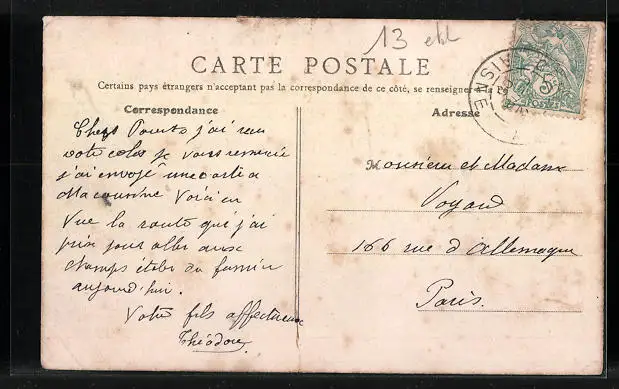 13 ebl
CARTE POSTALE
Certains pays étrangers n'acceptant pas la correspondance de ce côté, se renseigner à la
Correspondance
Adresse
Chers Parents j'ai reçu
votre colis je vous remercie
j'ai envoyé une carte a
Ma cousine Voici une
Vue la route que j'ai
pris pour aller aux
champs du fumier
aujourd'hui.
Votre fils affectueux
Théodore
Monsieur et Madame
Voyard
166 rue d'Allemagne
Paris.
5
POSTES
AISNE